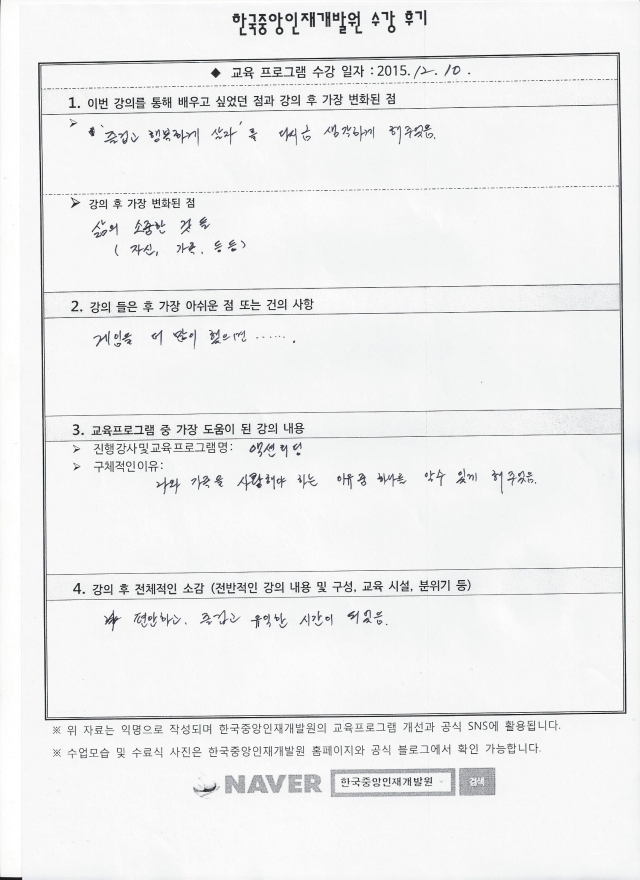 한국중앙인재개발원 수강 후기
◆ 교육 프로그램 수강 일자 : 2015. 12. 10.
1. 이번 강의를 통해 배우고 싶었던 점과 강의 후 가장 변화된 점
➢ '즐겁고 행복하게 살자'를 다시금 생각하게 해주었음.
➢ 강의 후 가장 변화된 점
삶의 소중한 것들
( 자신, 가족, 등등)
2. 강의 들은 후 가장 아쉬운 점 또는 건의 사항
게임을 더 많이 했으면 …….
3. 교육프로그램 중 가장 도움이 된 강의 내용
➢ 진행강사및교육프로그램명: 액션리딩
➢ 구체적인이유:
나와 가족을 사랑해야 하는 이유중 하나를 알수 있게 해주었음.
4. 강의 후 전체적인 소감 (전반적인 강의 내용 및 구성, 교육 시설, 분위기 등)
편안하고. 즐겁고 유익한 시간이 되었음.
※ 위 자료는 익명으로 작성되며 한국중앙인재개발원의 교육프로그램 개선과 공식 SNS에 활용됩니다.
※ 수업모습 및 수료식 사진은 한국중앙인재개발원 홈페이지와 공식 블로그에서 확인 가능합니다.
NAVER 한국중앙인재개발원 검색